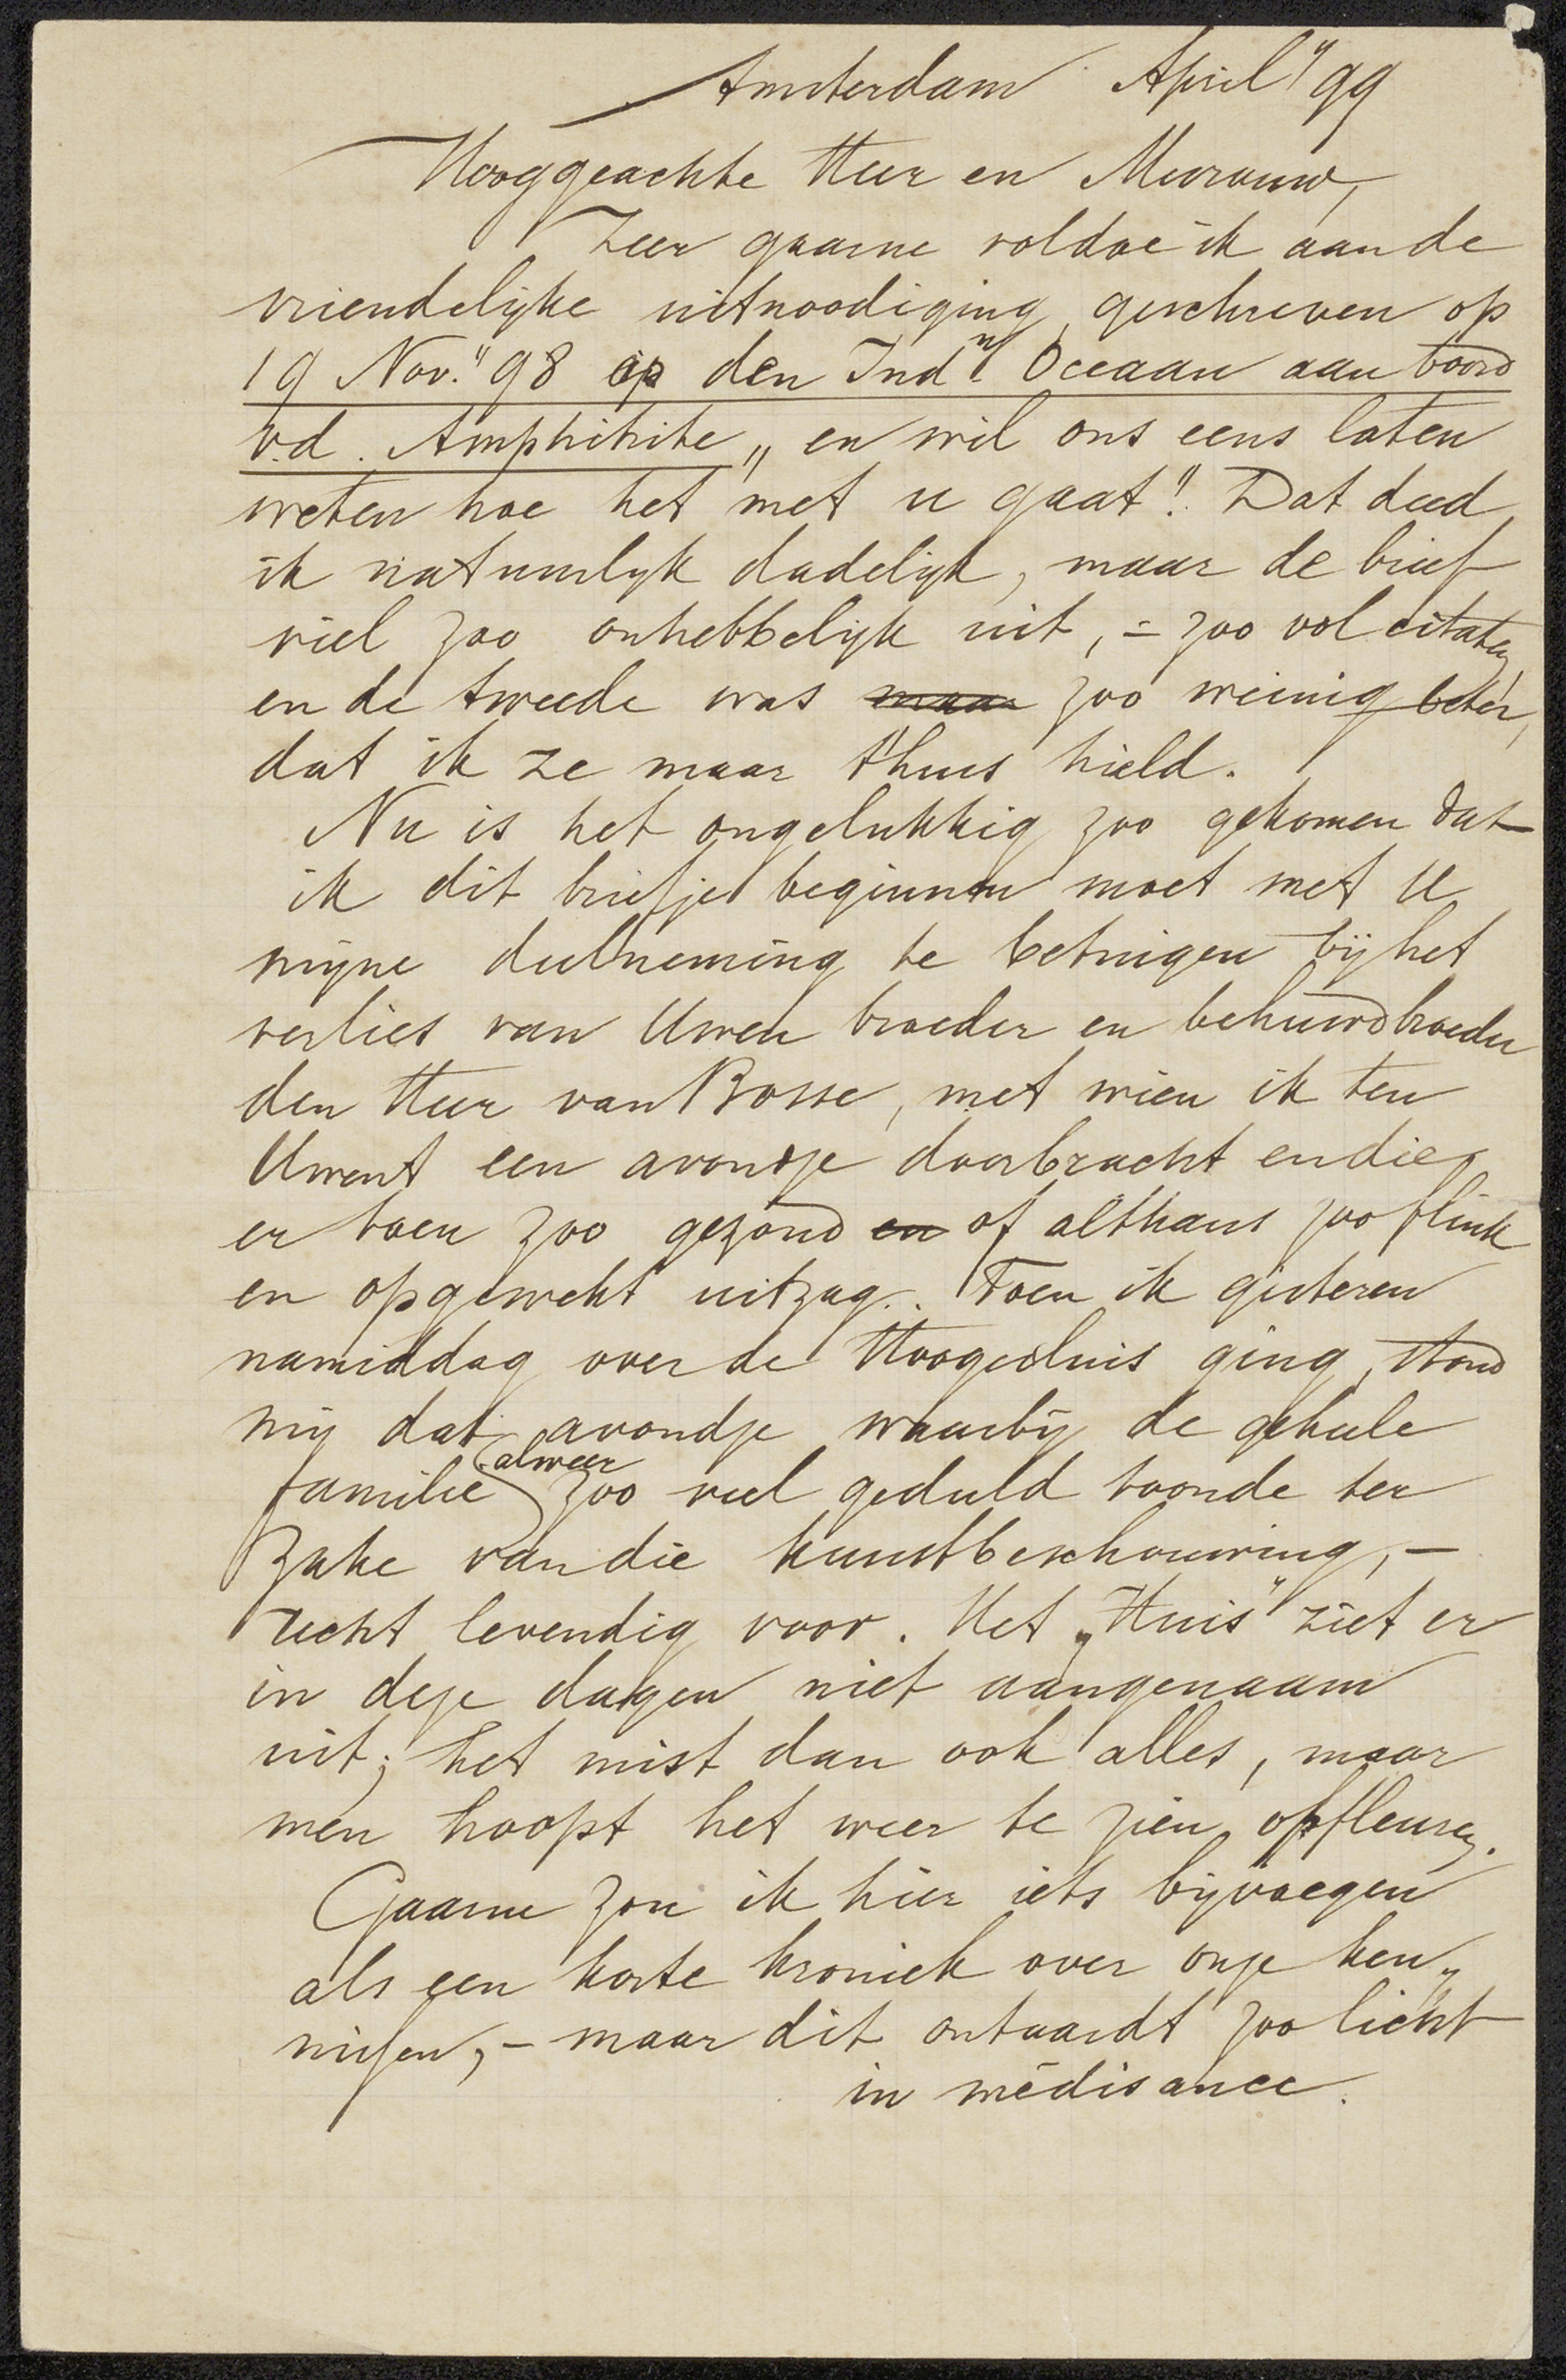 Amsterdam April "99
Hooggeachte Heer en Mevrouw,
Zeer gaarne voldoe ik aan de
vriendelijke uitnoodiging, geschreven op
19 Nov. "98 op den Indn Oceaan aan boord
v.d. Amphitrite „en wil ons eens laten
weten hoe het met u gaat". Dat deed
ik natuurlijk dadelijk, maar de brief
viel zoo onhebbelijk uit, = zoo vol citaten
en de tweede was maar zoo weinig beter,
dat ik ze maar t'huis hield.
Nu is het ongelukkig zoo gekomen dat
ik dit briefje beginnen moet met U
mijne deelneming te betuigen bij het
verlies van Uwen broeder en behuwdbroeder
den Heer van Bosse, met wien ik ten
Uwent een avondje doorbracht en die
er toen zoo gezond en of althans zoo flink
en opgewekt uitzag. Toen ik gisteren
namiddag over de Hoogesluis ging, stond
mij dat avondje waarbij de geheele
familie alweer zoo veel geduld toonde ter
zake van die kunstbeschouwing, –
recht levendig voor. Het „Huis" ziet er
in deze dagen niet aangenaam
uit; het mist dan ook alles, maar
men hoopt het weer te zien opfleuren.
Gaarne zou ik hier iets bijvoegen
als een korte kroniek over onze ken„
nissen, – maar dit ontaardt zoo licht
in médisance.